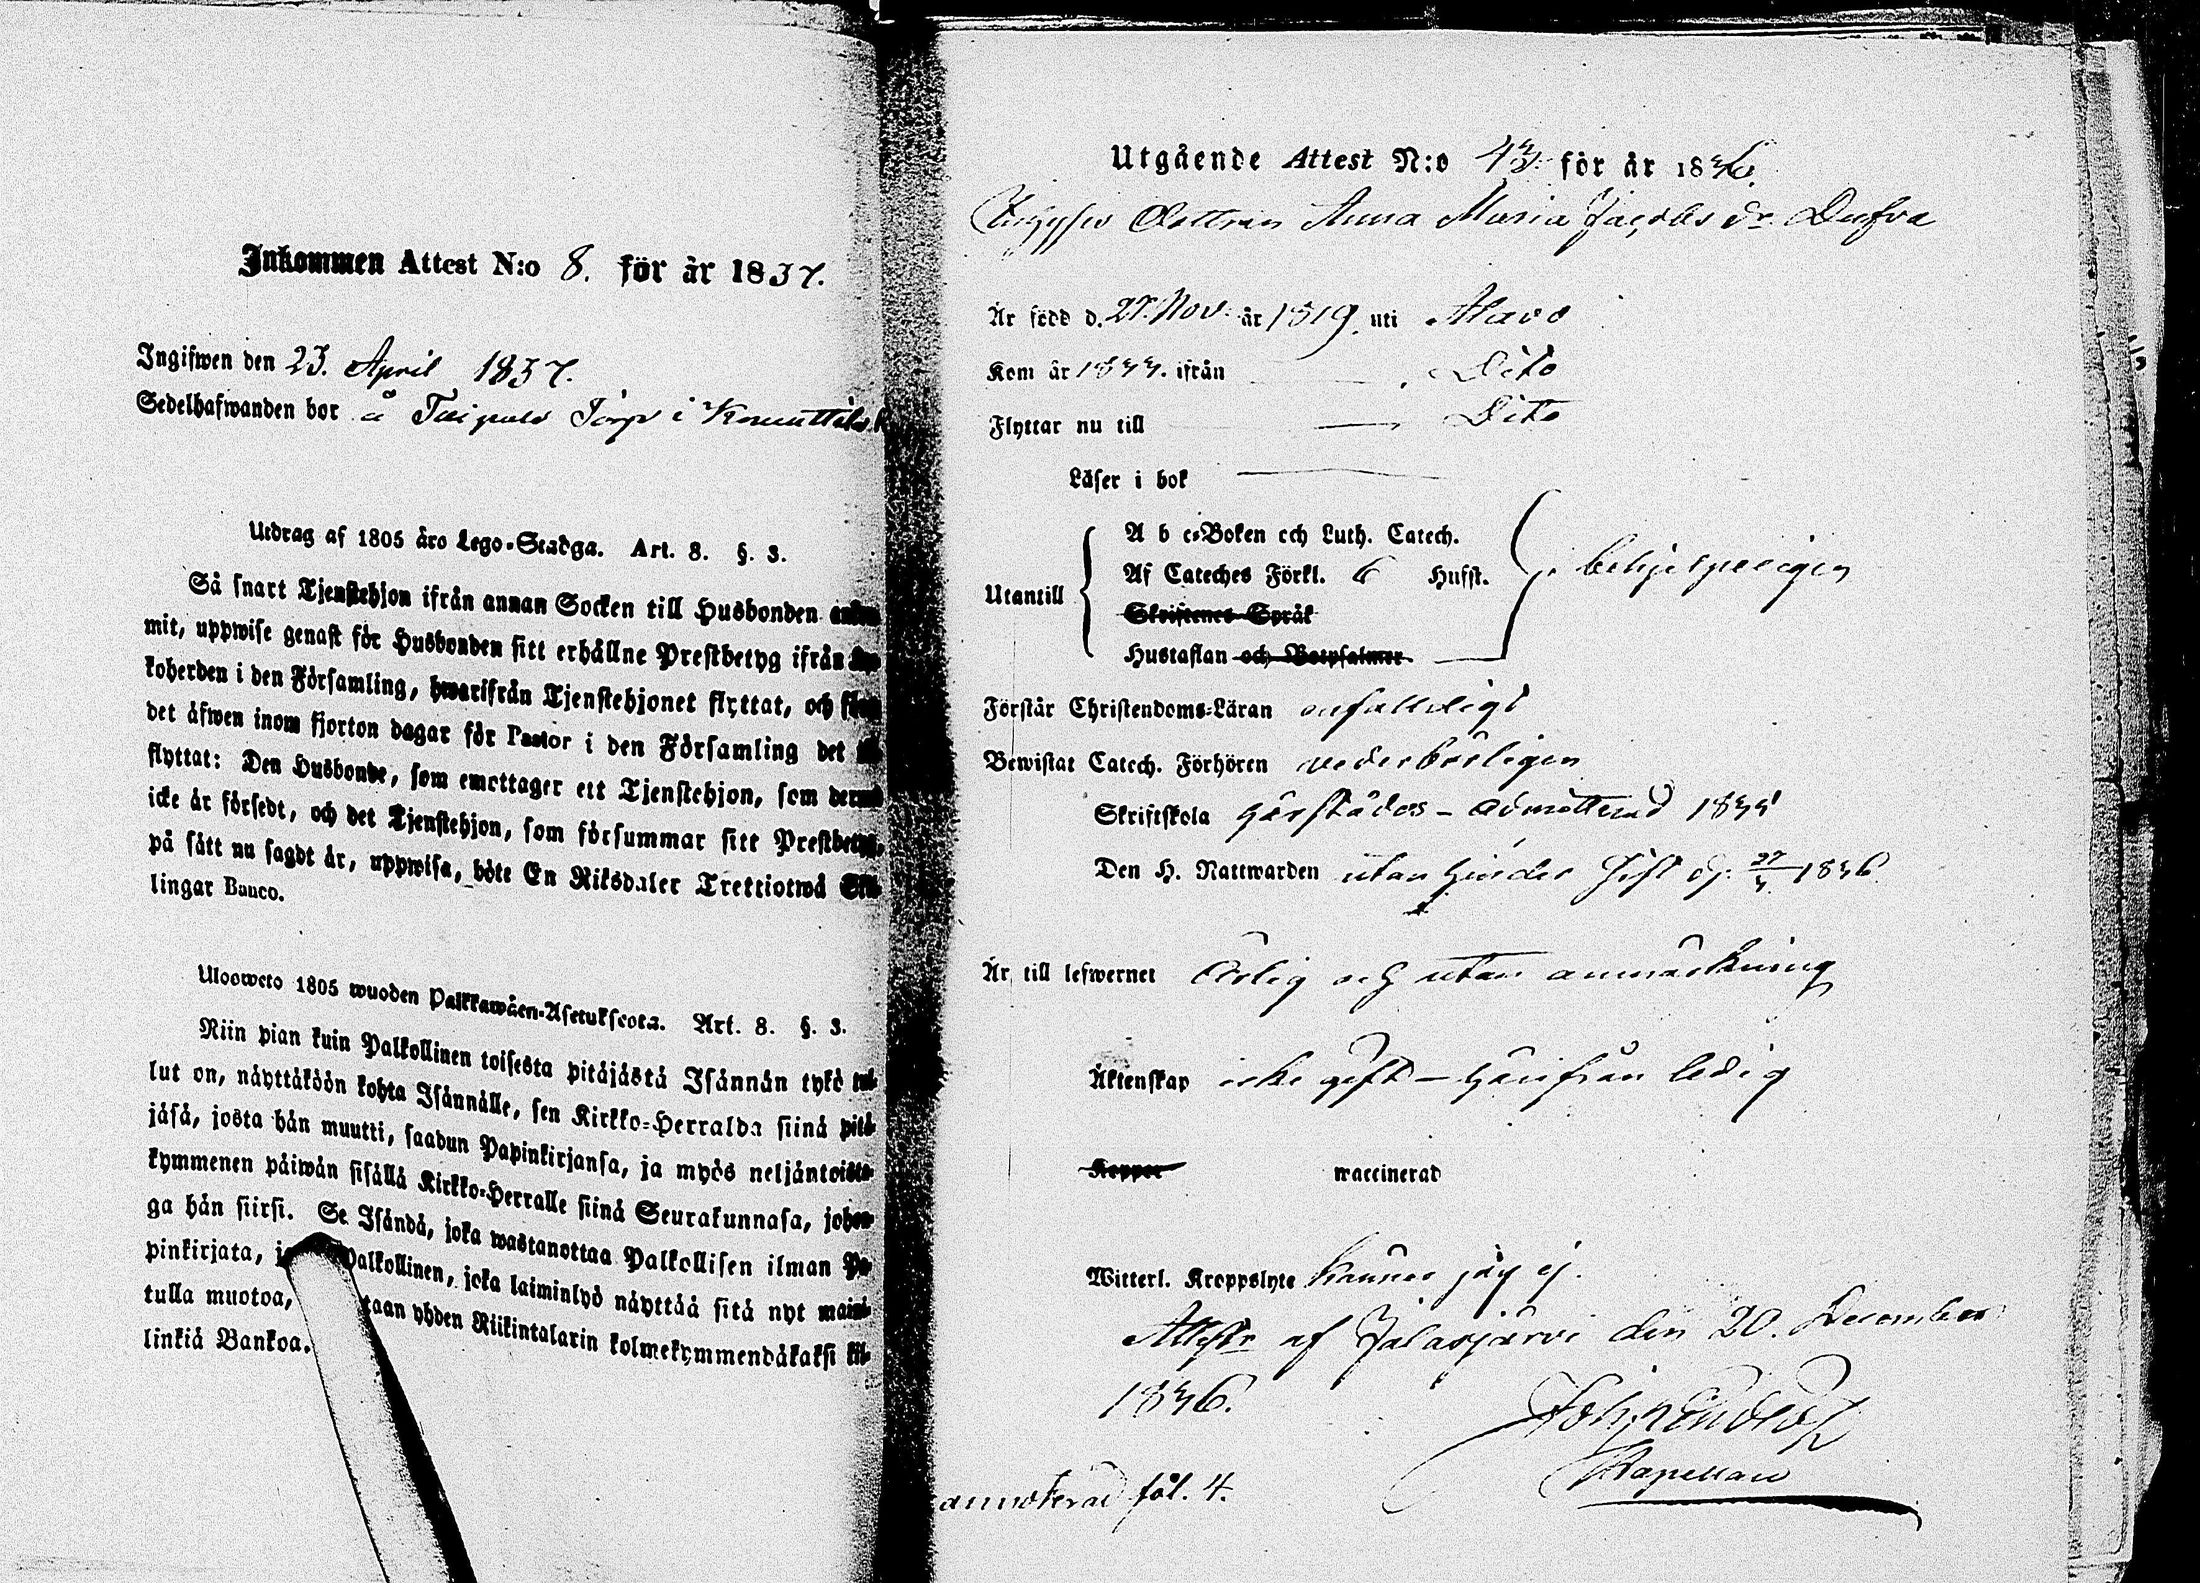 Inkommen Attest N:o 8. för år 1837.
Ingifwen den 23. April 1837.
Sedelhafwanden bor å Taipale Torp i
Utdrag af 1805 års Lego-Stadga. Art. 8. §. 3.
Så snart Tjenstehjon ifrån annan Socken till Husbonden
mit, uppwise genast för Husbonden sitt erhållne Prestbetyg ifrån
koherden i den Församling, hwarifrån Tjenstehjonet flyttat, och
det äfwen inom fjorton dagar för Pastor i den Församling det
flyttat: Den Husbonde, som emottager ett Tjenstehjon, som dermed
icke är försedt, och det Tjenstehjon, som försummar sitt Prestbetyg,
på sätt nu sagdt är, uppwisa, böte En Riksdaler Trettiotwå
lingar Banco.
Uloowcto 1805 wuoden Palkkawäen-Asetuksesta. Art. 8. §. 3.
Niin pian kuin Palkollinen toisesta pitäjästä Isännän tykö tul-
lut on, näyttäköön kohta Isännälle, sen Kirkko-Herralda siinä pitä-
jäsä, josta hän muutti, saadun Papinkirjansa, ja myös neljäntoista-
kymmenen päiwän sisällä Kirkko-Herralle siinä Seurakunnasa, johon-
ga hän siirsi. Se Isändä, joka wastanottaa Palkollisen ilman Pa-
pinkirjata, Palkollinen, joka laiminlyö näyttää sitä nyt maini-
tulla muotoa, yhden Riikintalarin kolmekymmendäkaksi kil-
linkiä Bankoa.
Utgående Attest N:o 43. för år 1836.
Anna Maria Jacobs dr Dufva
Är född d. 27. Nov. år 1819. uti Alavo
Kom år 1833. ifrån Dito
Flyttar nu till Dito
Läser i bok
Utantill
A b c-Boken och Luth. Catech.
Af Cateches Förkl. 6 Hufst.
Skriftenes Språk
Hustaflan och Botpsalmer
Förstår Christendoms-Läran enfalldigt
Bewistat Catech. Förhören vederbörligen
Skriftskola härstädes – admitterad
Den H. Nattwarden utan hinder sist d. 1836
Är till lefwernet Ärlig och utan anmärkning
Äktenskap icke gift – härifrån ledig
Koppor waccinerad
Witterl. Kroppslyte känner jag ej.
af Jalasjärvi den 20. December
1836.
Kapellan
annoterad fol. 4.